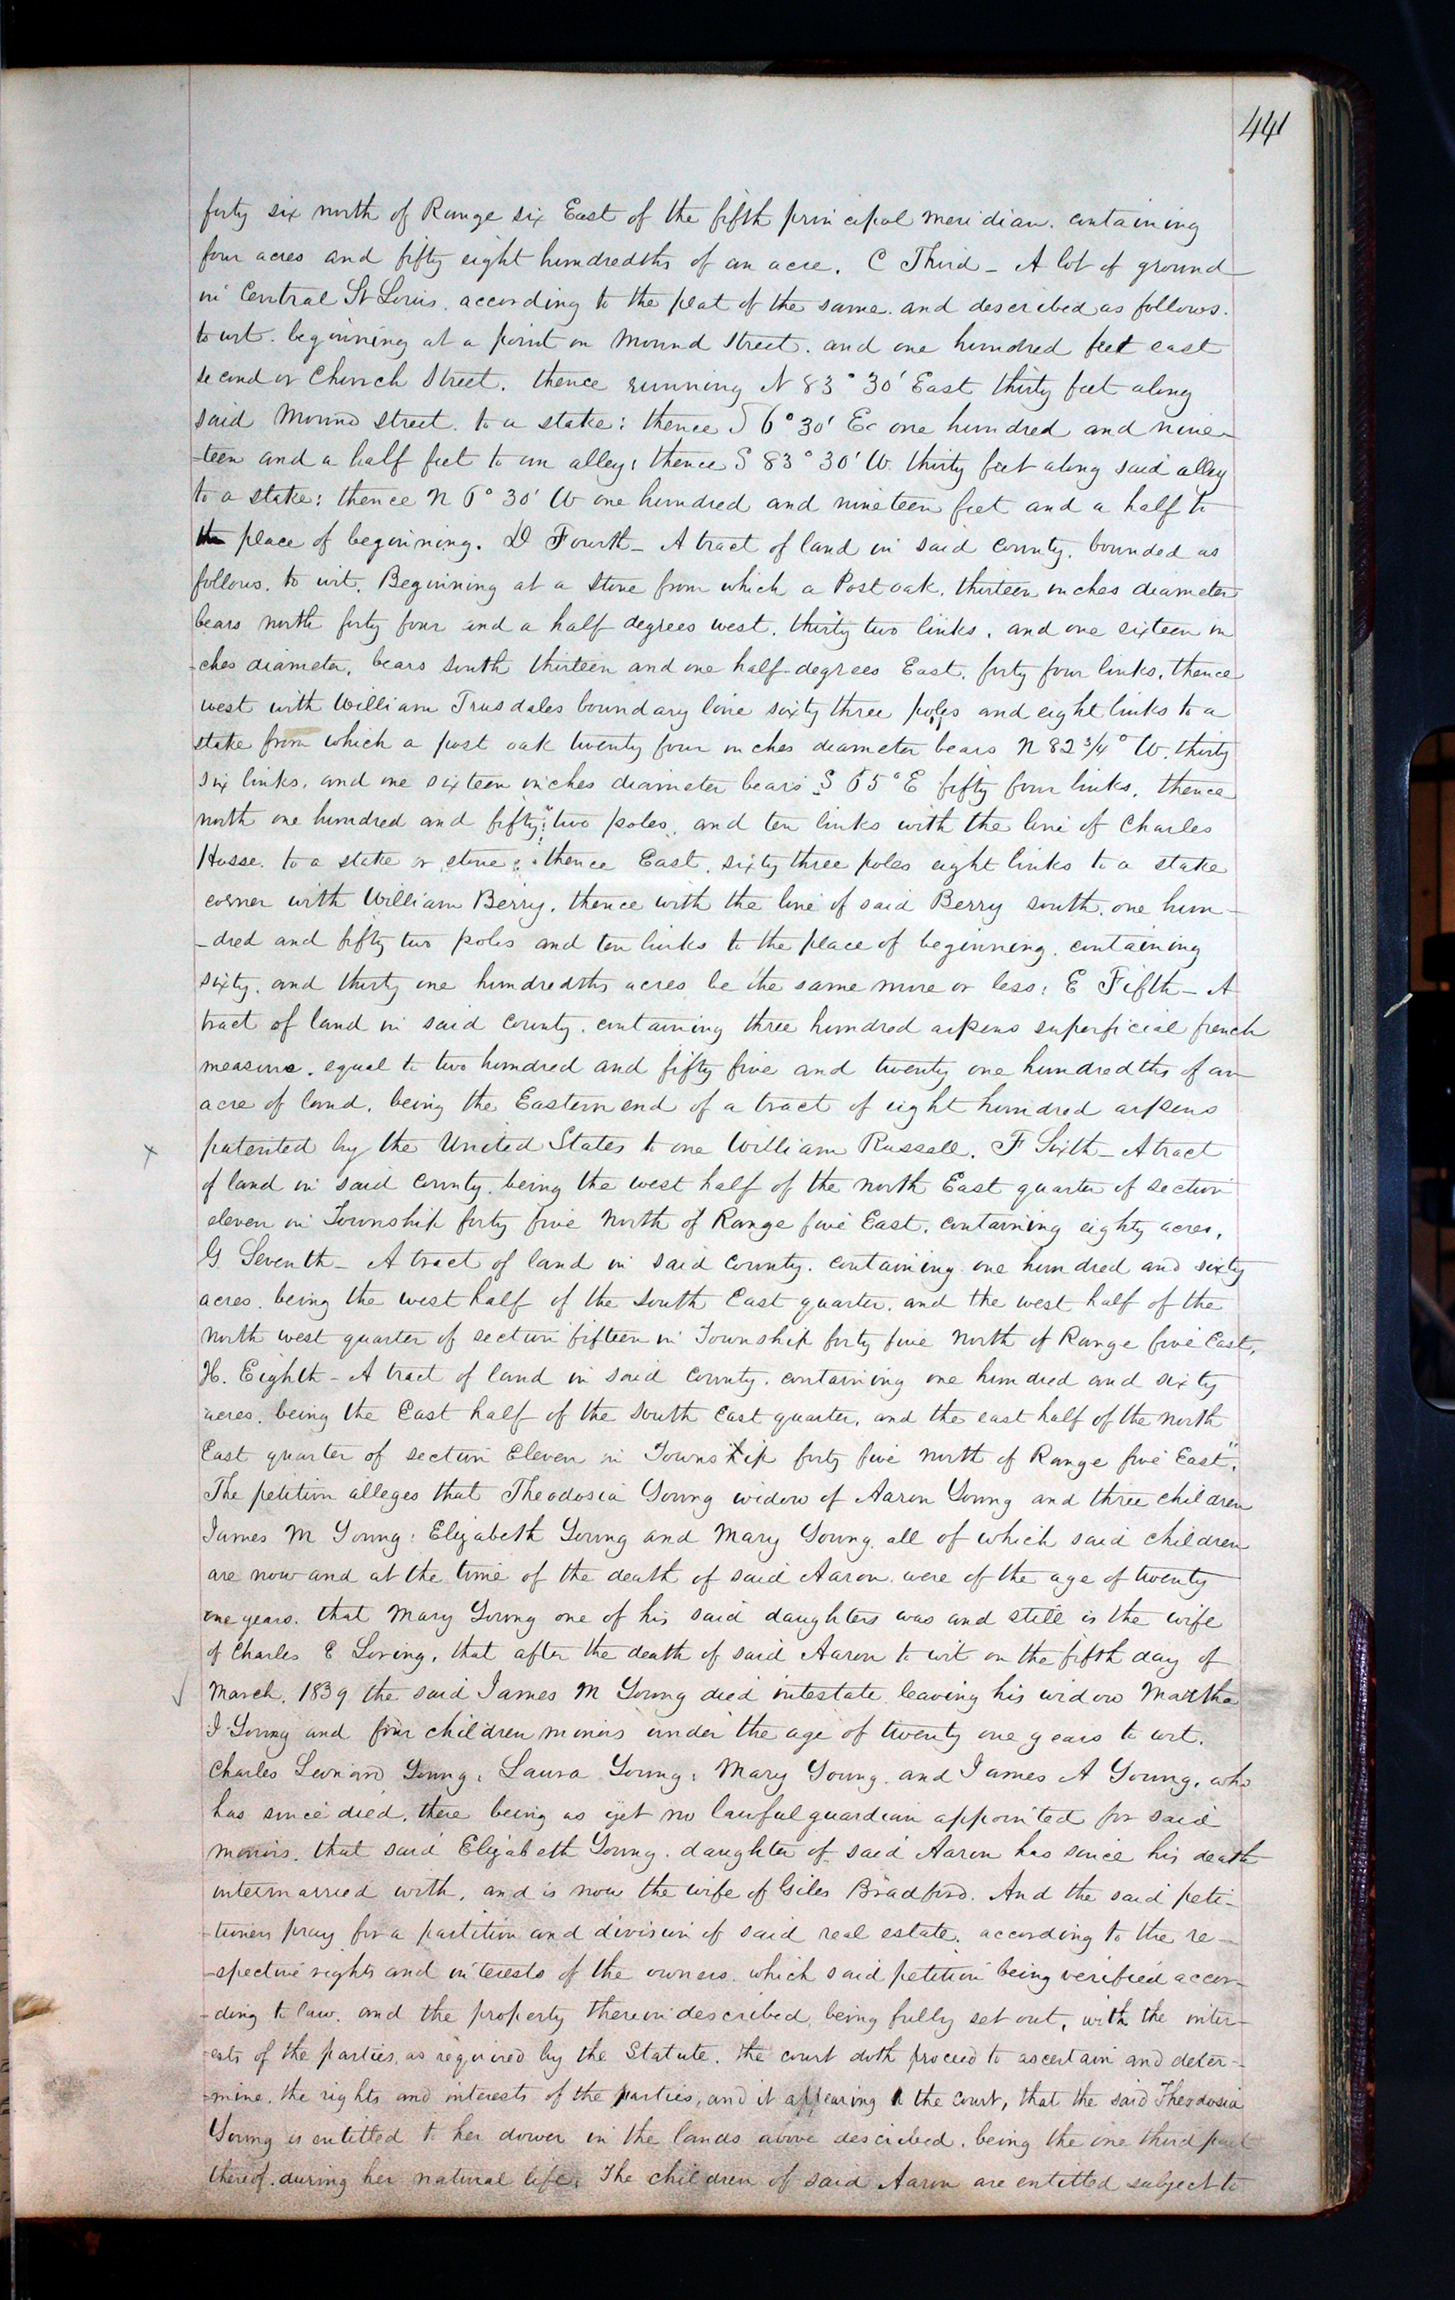 441
forty six north of Range six East of the fifth principal meridian. containing
four acres and fifty eight hundredths of an acre. C Third - A lot of ground
in Central St Louis. according to the plat of the same. and described as follows.
to wit. beginning at a point on Mound Street. and one hundred feet east
second or Church Street. thence running N 83° 30' East thirty feet along
said Mound street. to a stake: thence S 6° 30' E one hundred and nine-
-teen and a half feet to an alley: thence S 83° 30' W. thirty feet along said alley
to a stake: thence N 6° 30' W one hundred and nineteen feet and a half to
the place of beginning. D Fourth - A tract of land in said County. bounded as
follows. to wit. Beginning at a stone from which a Post oak. thirteen inches diameter
bears north forty four and a half degrees west. thirty two links. and one sixteen in
-ches diameter. bears south thirteen and one half degrees East. forty four links. thence
west with William Trusdales boundary line sixty three poles and eight links to a
stake from which a post oak twenty four inches diameter bears N 82 3/4° W. thirty
six links. and one sixteen inches diameter bears S 65° E fifty four links. thence
north one hundred and fifty two poles. and ten links with the line of Charles
Hosse. to a stake or stone: thence East. sixty three poles eight links to a stake
corner with William Berry. thence with the line of said Berry south. one hun-
-dred and fifty two poles and ten links to the place of beginning. containing
sixty. and thirty one hundredths acres be the same more or less: E Fifth - A
tract of land in said county. containing three hundred arpens superficial french
measure. equal to two hundred and fifty five and twenty one hundredths of an
acre of land. being the Eastern end of a tract of eight hundred arpens
patented by the United States to one William Russell. F Sixth - A tract
of land in said County. being the west half of the north East quarter of section
eleven in Township forty five North of Range five East. containing eighty acres.
G Seventh - A tract of land in said County. containing one hundred and sixty
acres. being the west half of the south East quarter. and the west half of the
north west quarter of section fifteen in Township forty five North of Range five East.
H. Eighth - A tract of land in said County. containing one hundred and sixty
acres. being the East half of the south East quarter. and the east half of the north
East quarter of section Eleven in Township forty five north of Range five East".
The petition alleges that Theodosia Young widow of Aaron Young and three children
James M Young: Elizabeth Young and Mary Young. all of which said children
are now and at the time of the death of said Aaron. were of the age of twenty
one years. that Mary Young one of his said daughters was and still is the wife
of Charles E Loring. that after the death of said Aaron to wit on the fifth day of
March. 1839 the said James M Young died intestate leaving his widow Martha
I Young and four children minors under the age of twenty one years to wit.
Charles Leonard Young: Laura Young: Mary Young. and James A Young. who
has since died. there being as yet no lawful guardian appointed for said
minors. that said Elizabeth Young. daughter of said Aaron has since his death
intermarried with. and is now the wife of Giles Bradford. And the said peti-
-tioners pray for a partition and division of said real estate. according to the re-
-spective rights and interests of the owners. which said petition being verified accor-
-ding to law. and the property therein described, being fully set out, with the inter-
-ests of the parties, as required by the Statute. the court doth proceed to ascertain and deter-
-mine. the rights and interests of the parties, and it appearing to the Court, that the said Theodosia
Young is entitled to her dower in the lands above described. being the one third part
thereof. during her natural life. The children of said Aaron are entitled subject to